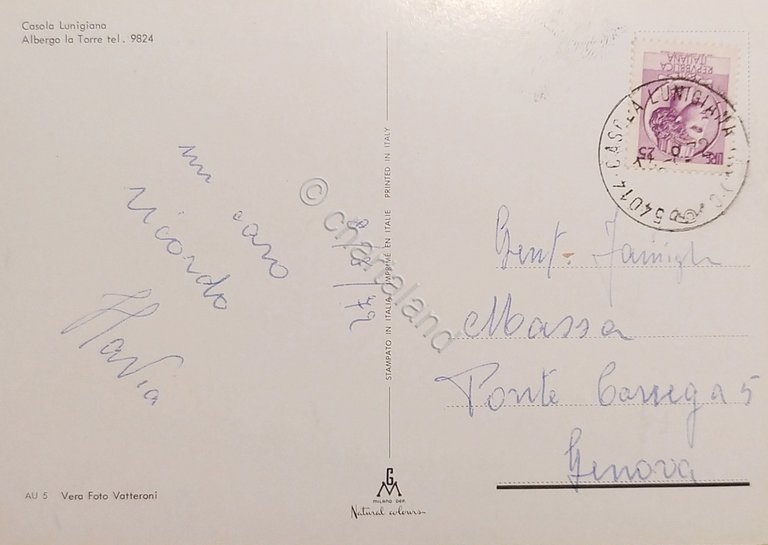 Casola Lunigiana
Albergo la Torre tel. 9824
un caro
ricordo
Flavia
STAMPATO IN ITALIA IMPRIMÉ EN ITALIE PRINTED IN ITALY
© chartaland
REPVBBLICA
ITALIANA
LIRE 25
54014 CASOLA LUNIGIANA
Gent. Famiglia
Massa
Ponte Carrega 5
Genova
AU 5 Vera Foto Vatteroni
GM
MILANO DEP.
Natural colours